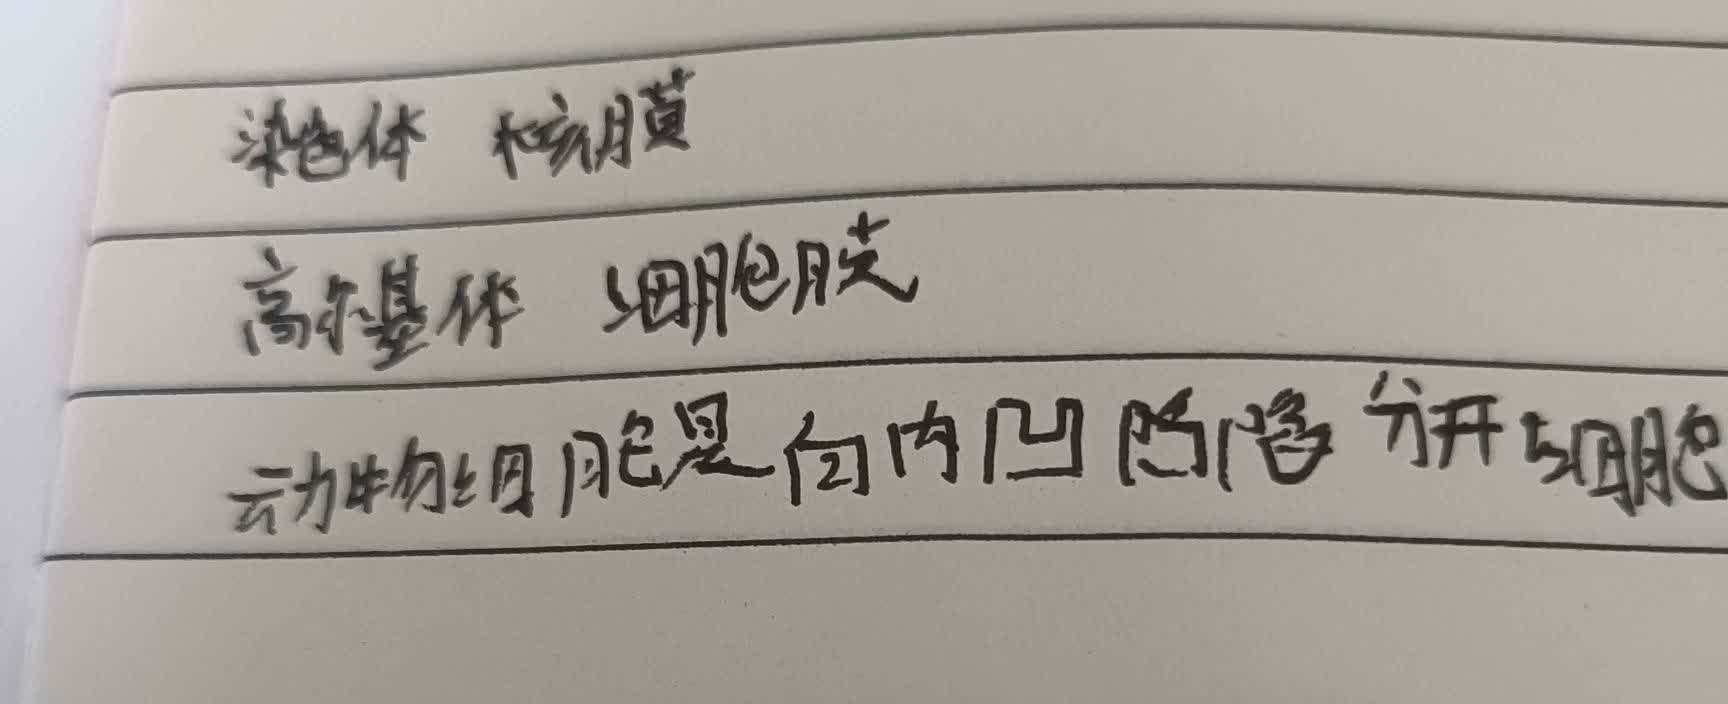 染色体 核膜
高尔基体 细胞膜
动物细胞是向内凹陷 分开细胞